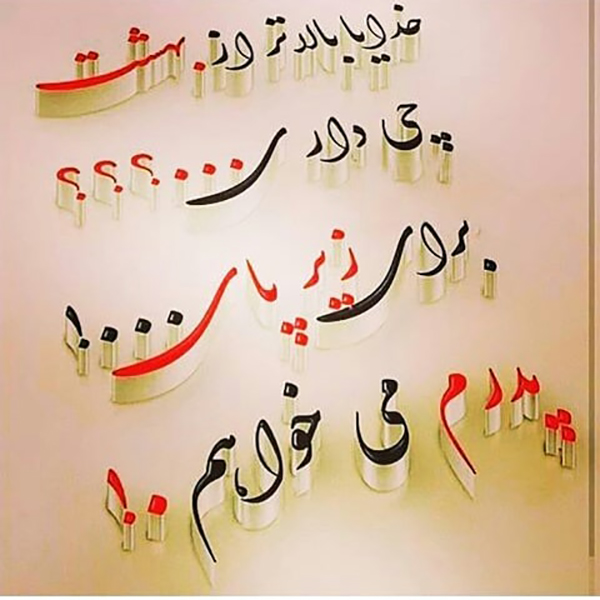 خدایا بالاتر از بهشت
چی داری...؟؟؟
برای زیر پای...!
پدرم می خواهم.!